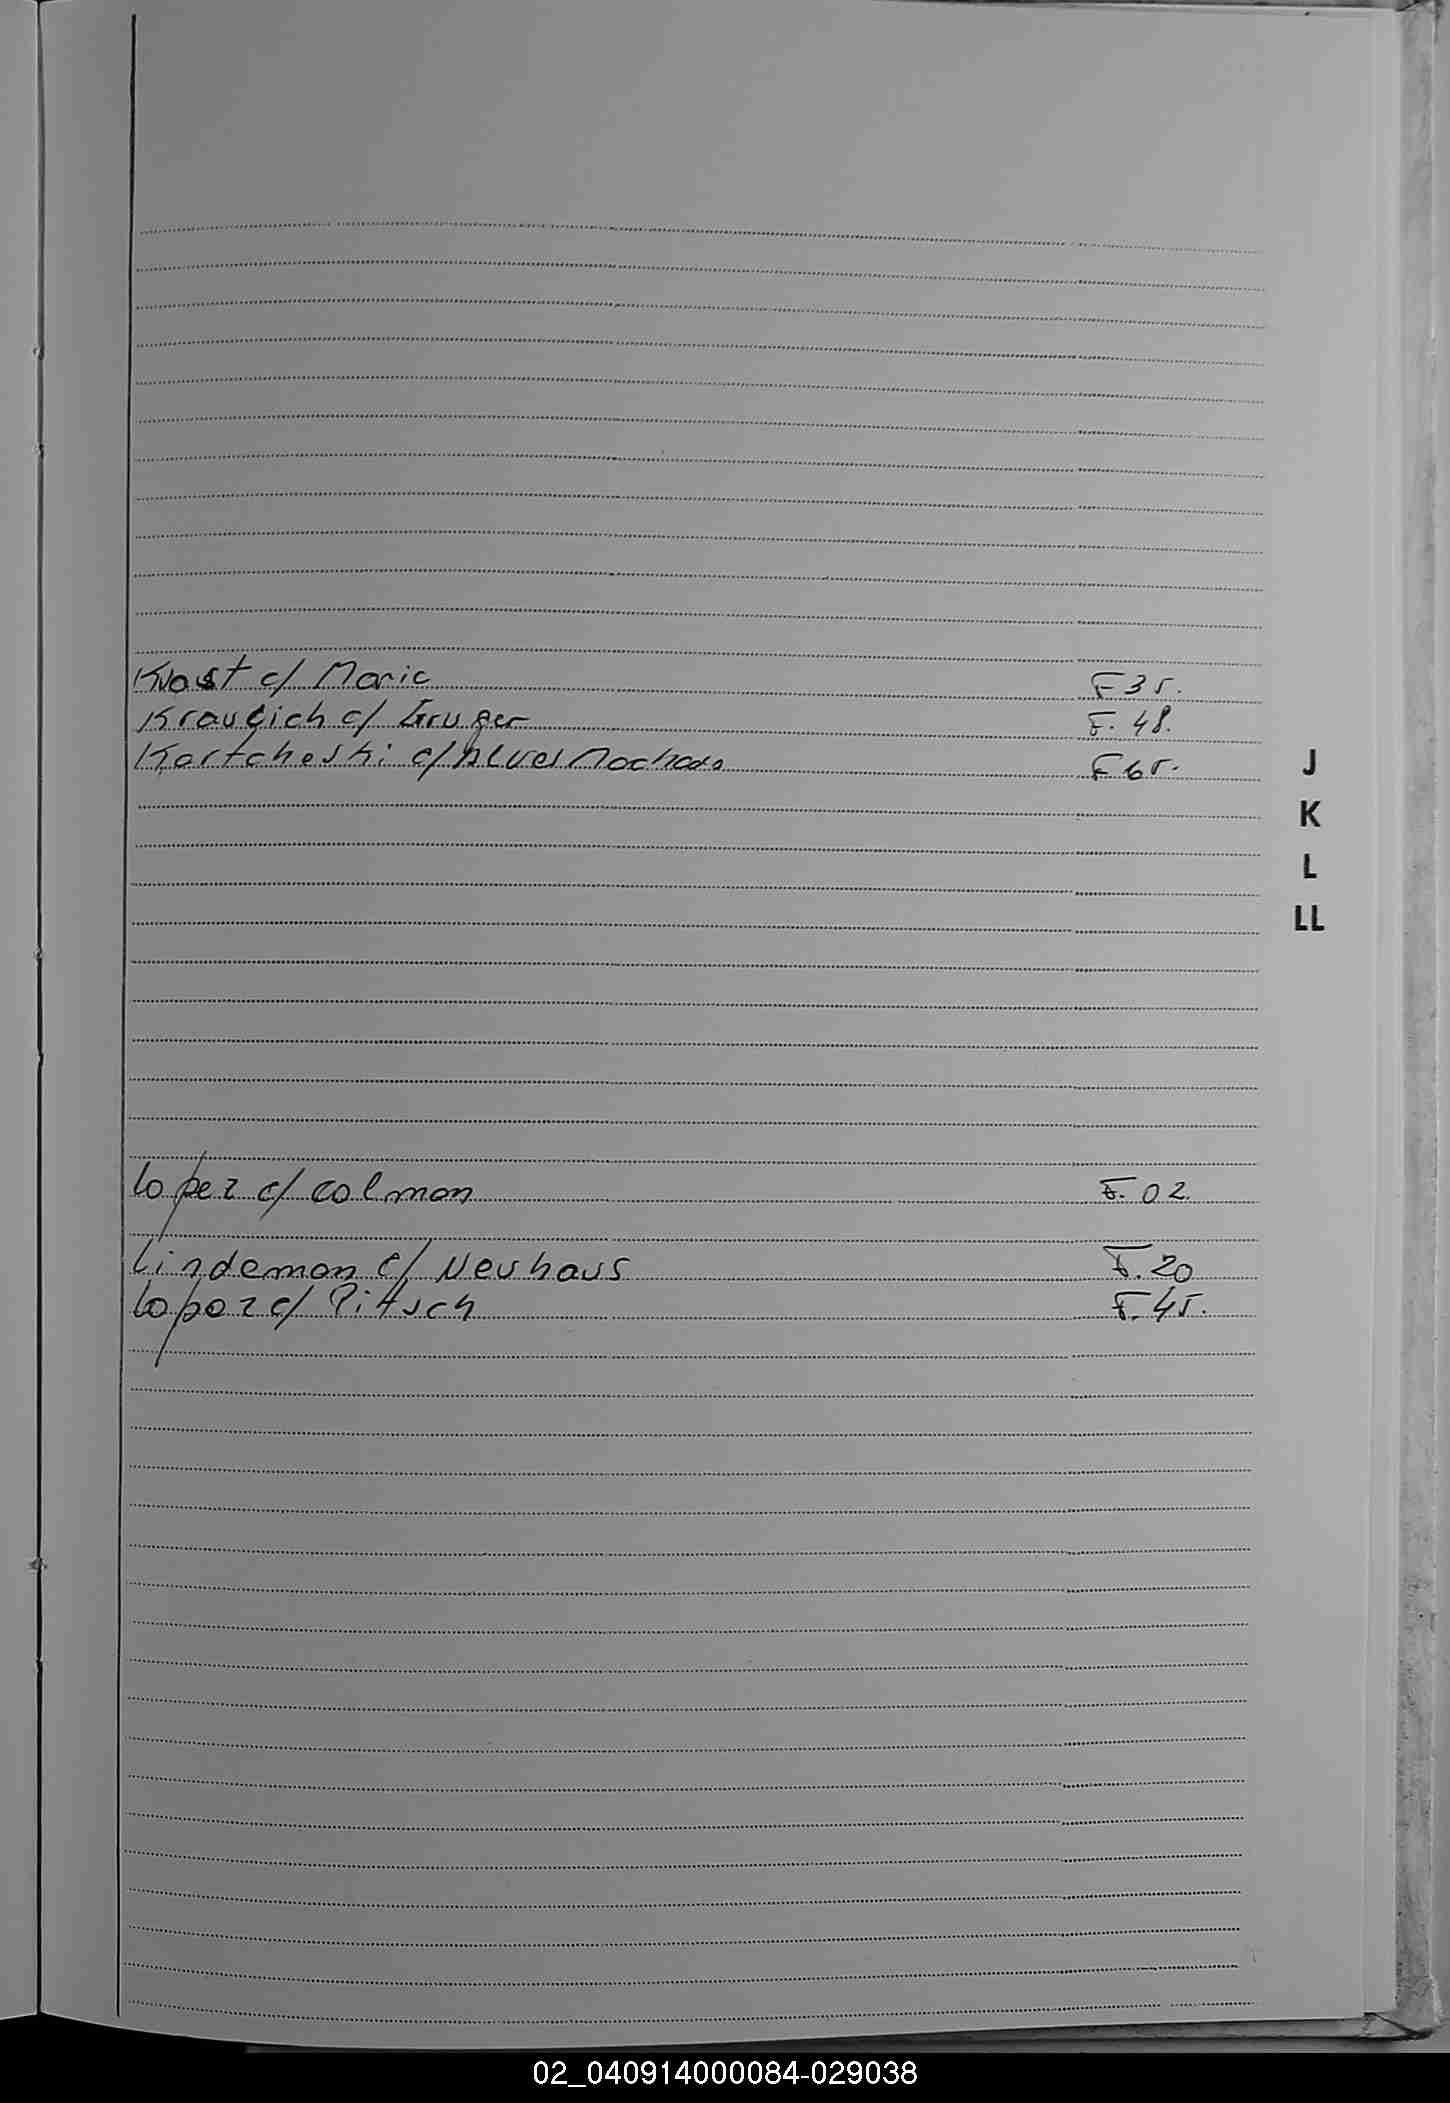 Kvast c/ Maric F 35.
Kraulich c/ Gruger F. 48.
Kartcheski c/ Alves Machado F 65.
J
K
L
LL
Lopez c/ Colman F. 02.
Lindeman c/ Neuhaus F. 20
Lopez c/ Pitsch F. 45.
02_040914000084-029038